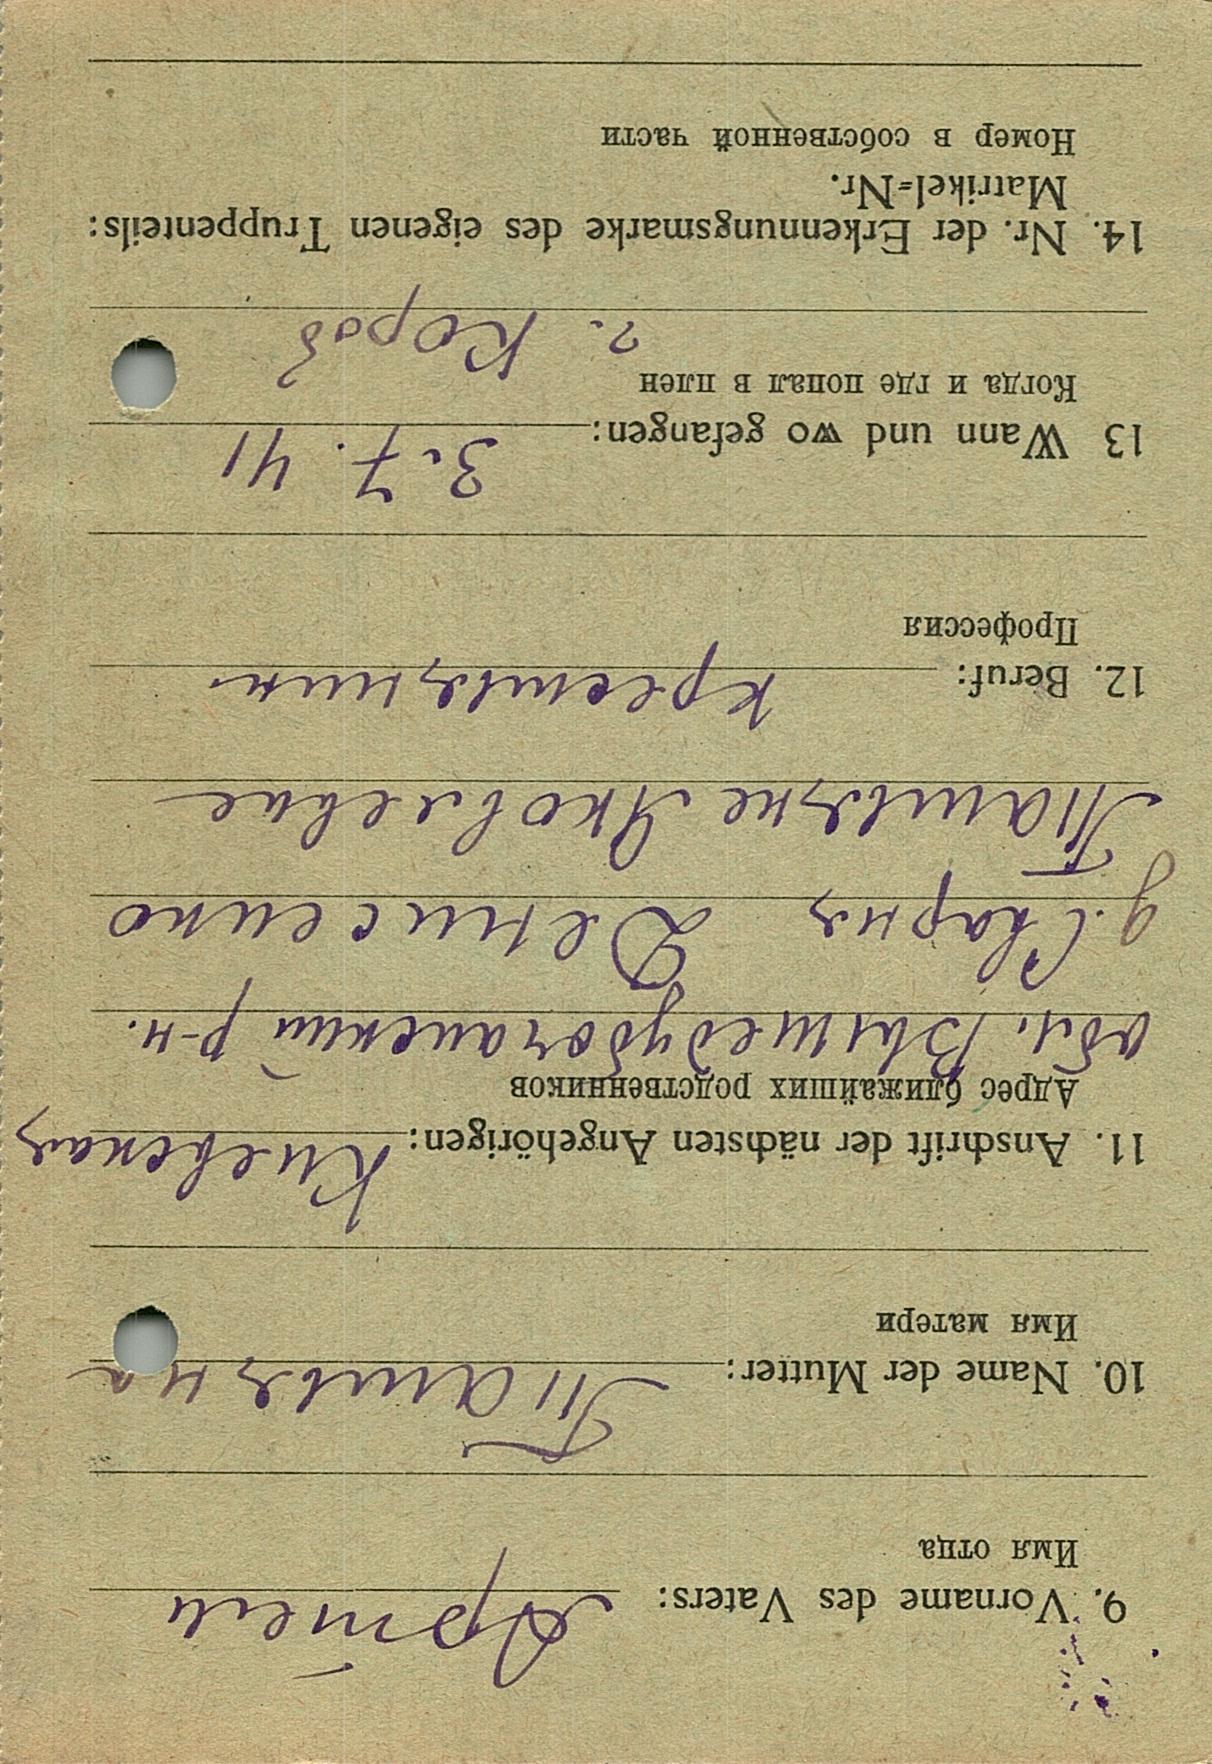 9. Vorname des Vaters: Артем
Имя отца
10. Name der Mutter: Татьяна
Имя матери
11. Anschrift der nächsten Angehörigen: Киевская
Адрес ближайших родственников
обл. Вышедубочанский р-н.
д. Сварня Денисенко
Татьяне Яковлевне
12. Beruf: крестьянин
Профессия
13 Wann und wo gefangen: 3.7.41
Когда и где попал в плен
г. Короб
14. Nr. der Erkennungsmarke des eigenen Truppenteils:
Matrikel=Nr.
Номер в собственной части